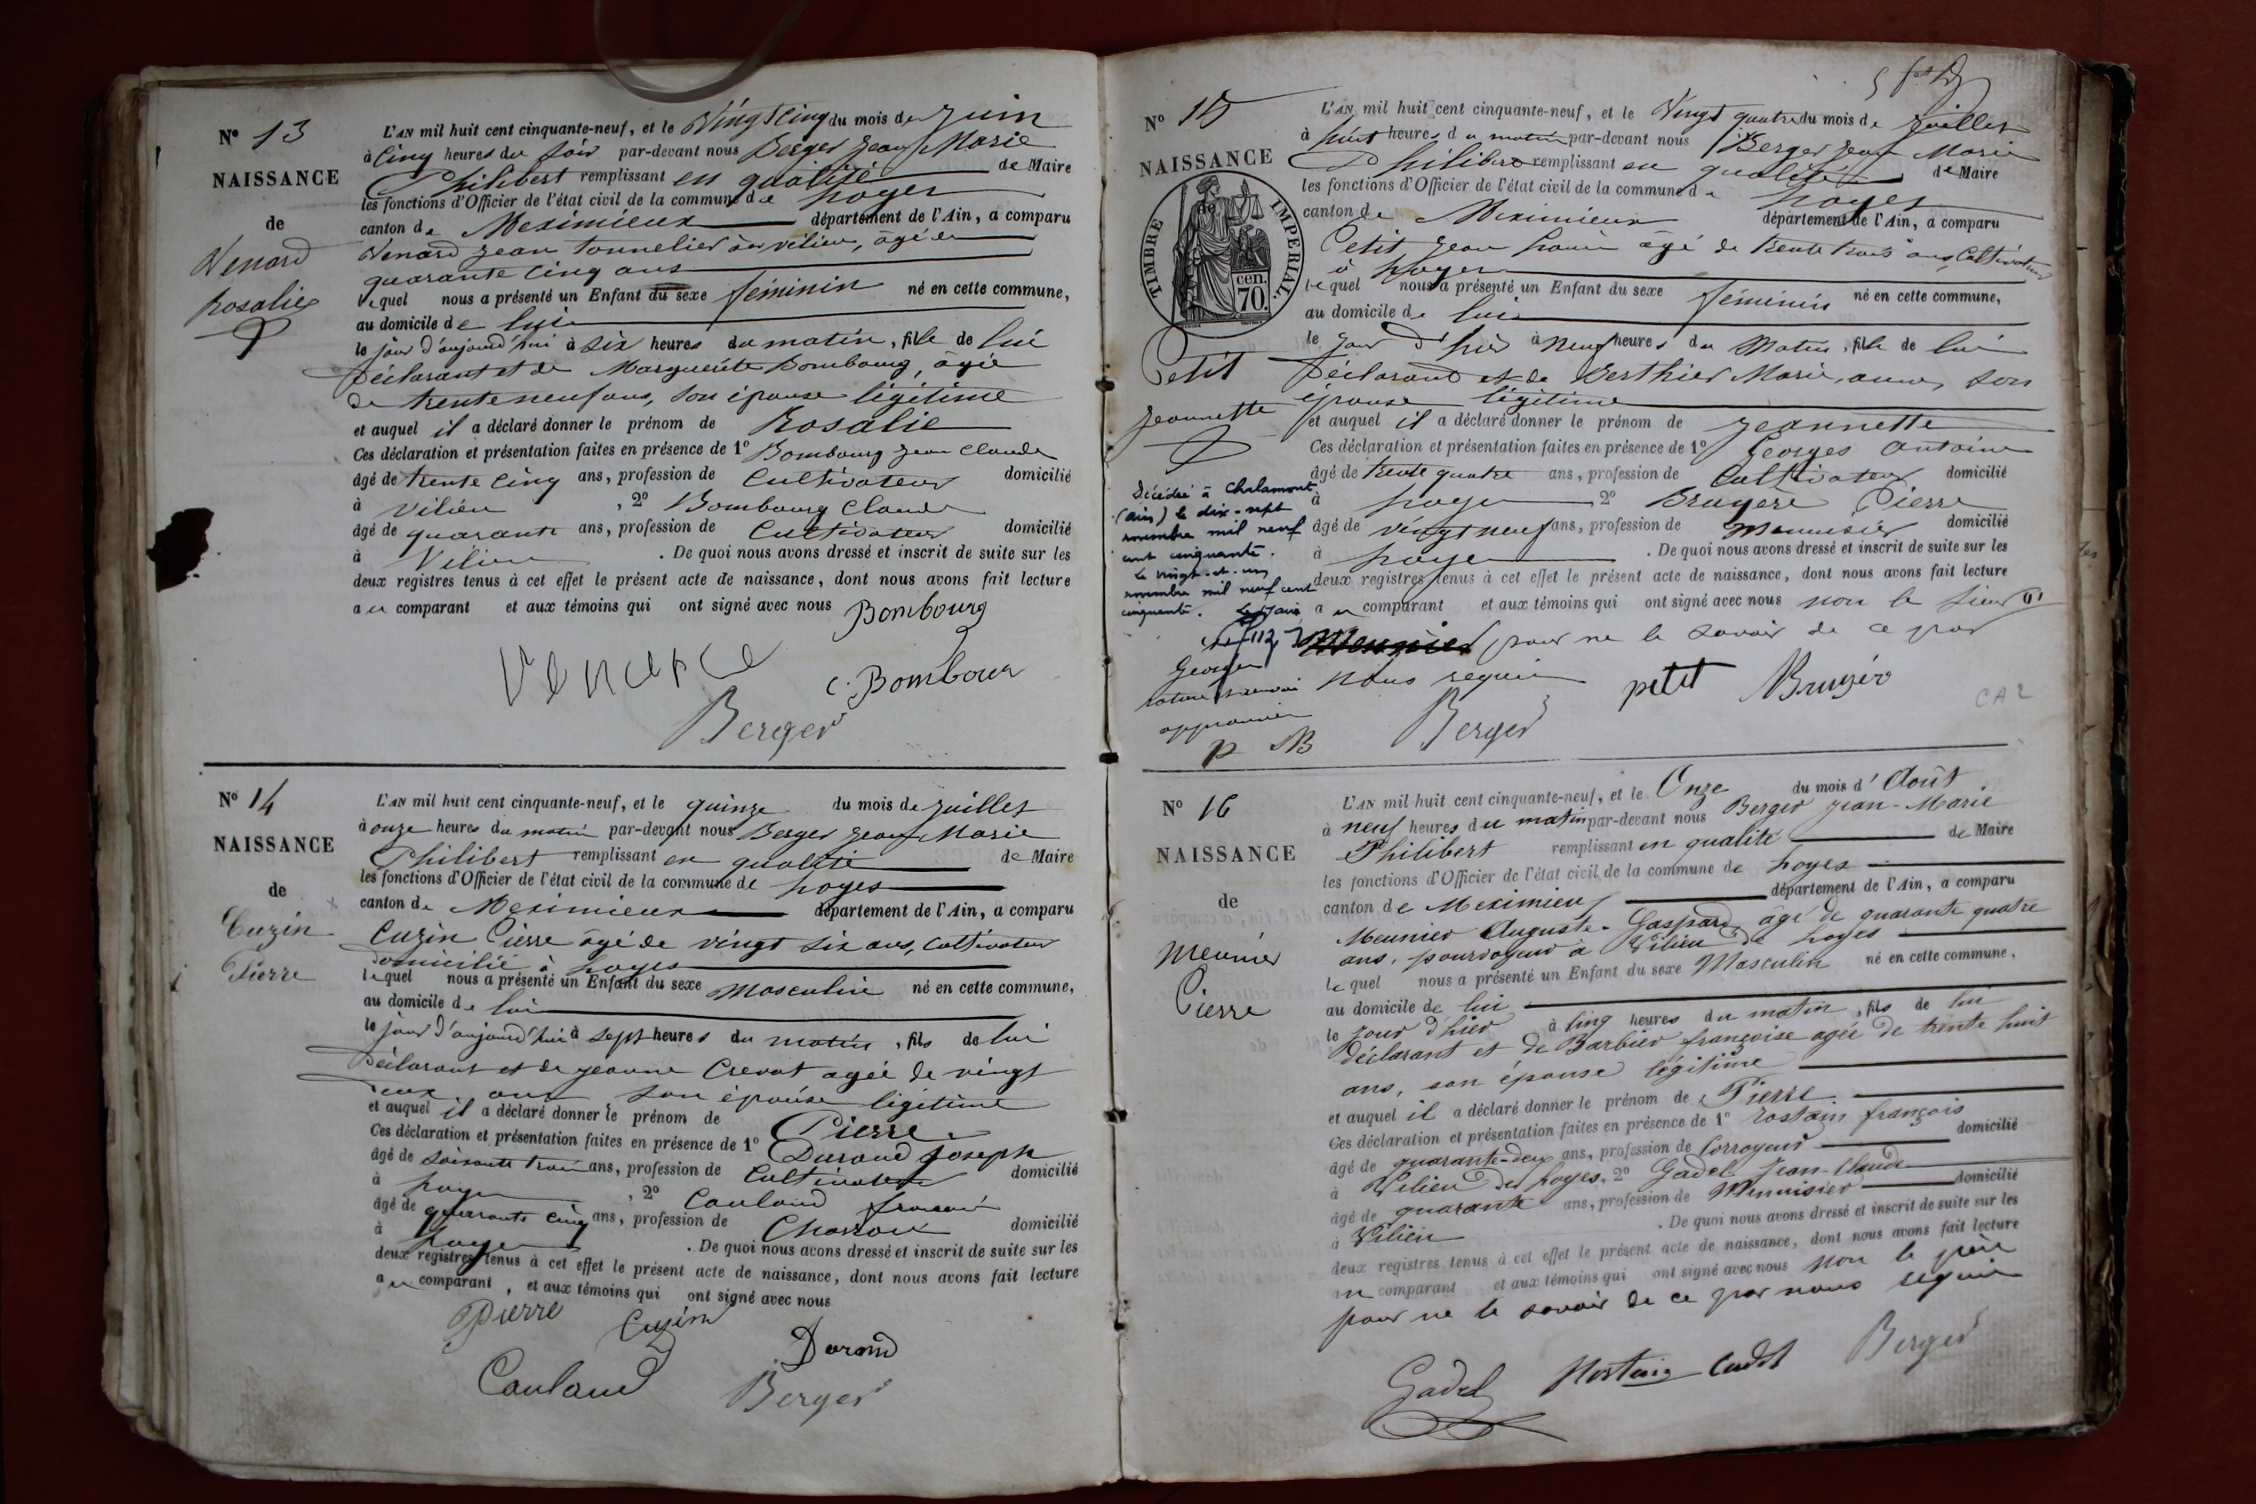 N° 13
NAISSANCE
de
Venard
Rosalie
L'AN mil huit cent cinquante-neuf, et le Vingt Cinq du mois de Juin
à Cinq heures du Soir par-devant nous Berger Jean Marie
Philibert remplissant en qualité de Maire
les fonctions d'Officier de l'état civil de la commune de Loyes
canton de Meximieux département de l'Ain, a comparu
Venard Jean tonnelier à Vilieu, âgé de
quarante cinq ans
lequel nous a présenté un Enfant du sexe féminin né en cette commune,
au domicile de lui
le jour d'aujourd'hui à six heures du matin, fille de lui
Déclarant et de Marguerite Bombourg, âgée
de trente neuf ans, son épouse légitime
et auquel il a déclaré donner le prénom de Rosalie
Ces déclaration et présentation faites en présence de 1° Bombourg Jean Claude
âgé de trente Cinq ans, profession de Cultivateur domicilié
à Vilieu, 2° Bombourg Claude
âgé de quarante ans, profession de Cultivateur domicilié
à Vilieu. De quoi nous avons dressé et inscrit de suite sur les
deux registres tenus à cet effet le présent acte de naissance, dont nous avons fait lecture
au comparant et aux témoins qui ont signé avec nous Bombourg
C. Bombour
Berger
N° 14
NAISSANCE
de
Cuzin
Pierre
L'AN mil huit cent cinquante-neuf, et le quinze du mois de Juillet
à onze heures du matin par-devant nous Berger Jean Marie
Philibert remplissant en qualité de Maire
les fonctions d'Officier de l'état civil de la commune de Loyes
canton de Meximieux département de l'Ain, a comparu
Cuzin Pierre âgé de vingt six ans, Cultivateur
domicilié à Loyes
lequel nous a présenté un Enfant du sexe Masculin né en cette commune,
au domicile de lui
le jour d'aujourd'hui à sept heures du matin, fils de lui
Déclarant et de Jeanne Crevat agée de vingt
deux ans son épouse légitime
et auquel il a déclaré donner le prénom de Pierre
Ces déclaration et présentation faites en présence de 1° Durand Joseph
âgé de soixante trois ans, profession de Cultivateur domicilié
à Loyes, 2° Couland francois
âgé de quarante cinq ans, profession de Charron domicilié
à Loyes. De quoi nous avons dressé et inscrit de suite sur les
deux registres tenus à cet effet le présent acte de naissance, dont nous avons fait lecture
au comparant, et aux témoins qui ont signé avec nous
Pierre Cuzin
Durand
Couland Berger
N° 15
NAISSANCE
de
TIMBRE IMPERIAL.
70 cen.
Petit
Jeannette
L'AN mil huit cent cinquante-neuf, et le Vingt quatre du mois de Juillet
à huit heures du matin par-devant nous Berger Jean Marie
Philibert remplissant en qualité de Maire
les fonctions d'Officier de l'état civil de la commune de Loyes
canton de Meximieux département de l'Ain, a comparu
Petit Jean Louis âgé de trente trois ans, Cultivateur
à Loyes
lequel nous a présenté un Enfant du sexe féminin né en cette commune,
au domicile de lui
le jour d'hier à Neuf heures du Matin, fille de lui
Déclarant et de Berthier Marie, son
épouse légitime
et auquel il a déclaré donner le prénom de Jeannette
Ces déclaration et présentation faites en présence de 1° Georges Antoine
âgé de trente quatre ans, profession de Cultivateur domicilié
à Loyes 2° Bruyere Pierre
âgé de vingt neuf ans, profession de Menuisier domicilié
à Loyes. De quoi nous avons dressé et inscrit de suite sur les
deux registres tenus à cet effet le présent acte de naissance, dont nous avons fait lecture
au comparant et aux témoins qui ont signé avec nous non le sieur
Meunier pour ne le savoir de ce par
nous requis
petit Bruyér
Berger
Décédée à Chalamont
(Ain) le dix-sept
novembre mil neuf
cent cinquante.
Le vingt-et-un
novembre mil neuf cent
cinquante.
Georges
P B
CA2
N° 16
NAISSANCE
de
Meunier
Pierre
L'AN mil huit cent cinquante-neuf, et le Onze du mois d'Août
à neuf heures du matin par-devant nous Berger Jean-Marie
Philibert remplissant en qualité de Maire
les fonctions d'Officier de l'état civil de la commune de Loyes
canton de Meximieux département de l'Ain, a comparu
Meunier Auguste-Gaspard âgé de quarante quatre
ans, pourvoyeur à Vilieu de Loyes
lequel nous a présenté un Enfant du sexe Masculin né en cette commune,
au domicile de lui
le jour d'hier à Cinq heures du matin, fils de lui
déclarant et de Barbier françoise agée de trente huit
ans, son épouse légitime
et auquel il a déclaré donner le prénom de Pierre
Ces déclaration et présentation faites en présence de 1° rostain françois
âgé de quarante-deux ans, profession de Corroyeur domicilié
à Vilieu de Loyes, 2° Gadel Jean-Claude
âgé de quarante ans, profession de Menuisier domicilié
à Vilieu. De quoi nous avons dressé et inscrit de suite sur les
deux registres tenus à cet effet le présent acte de naissance, dont nous avons fait lecture
au comparant et aux témoins qui ont signé avec nous non le père
pour ne le savoir de ce par nous requis
Gadel Rostaing Cadet Berger